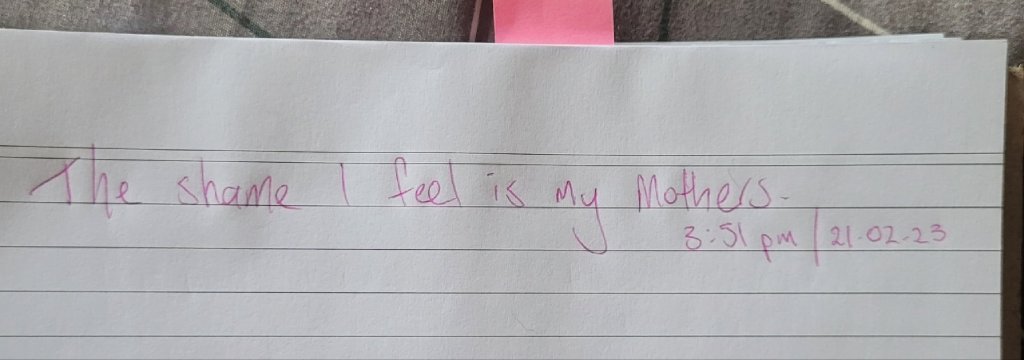 The shame I feel is my Mothers.
3:51 pm | 21.02.23